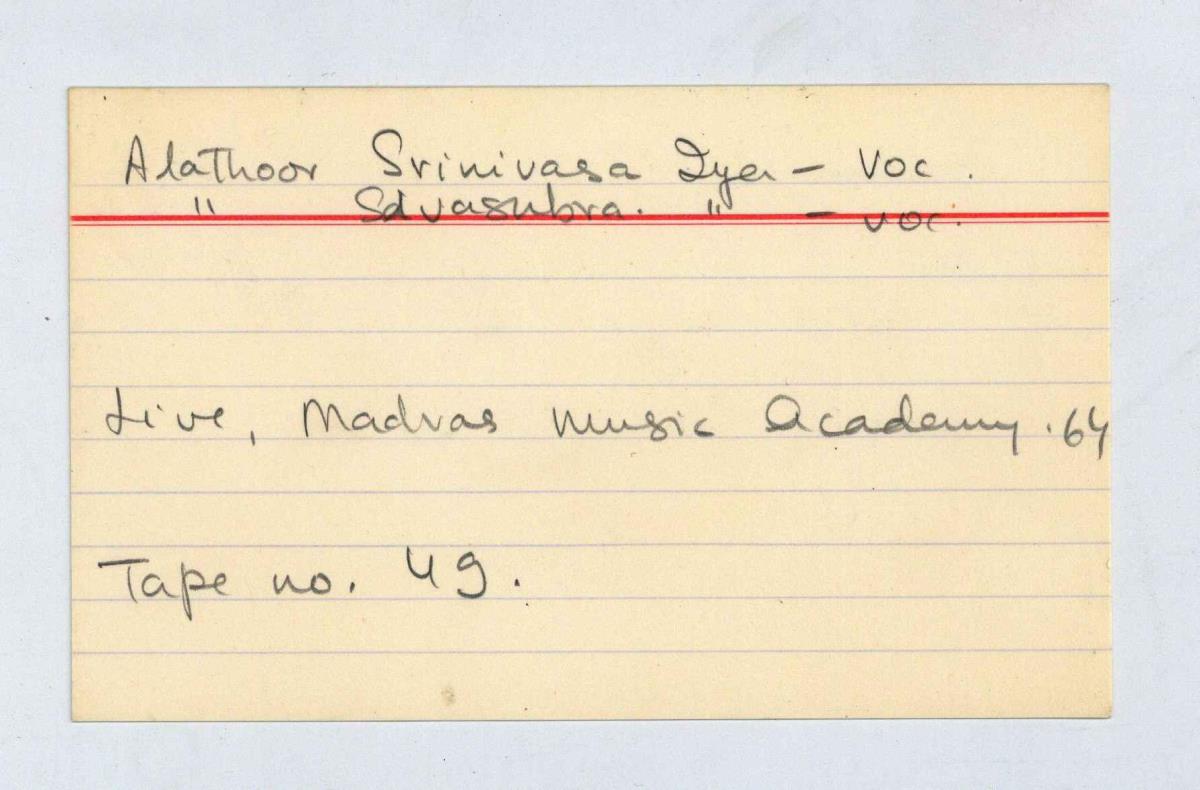 Alathoor Srinivasa Iyer - Voc.
" Sdvasubra. " - voc.
Live, Madras Music Academy. 64
Tape no. 49.